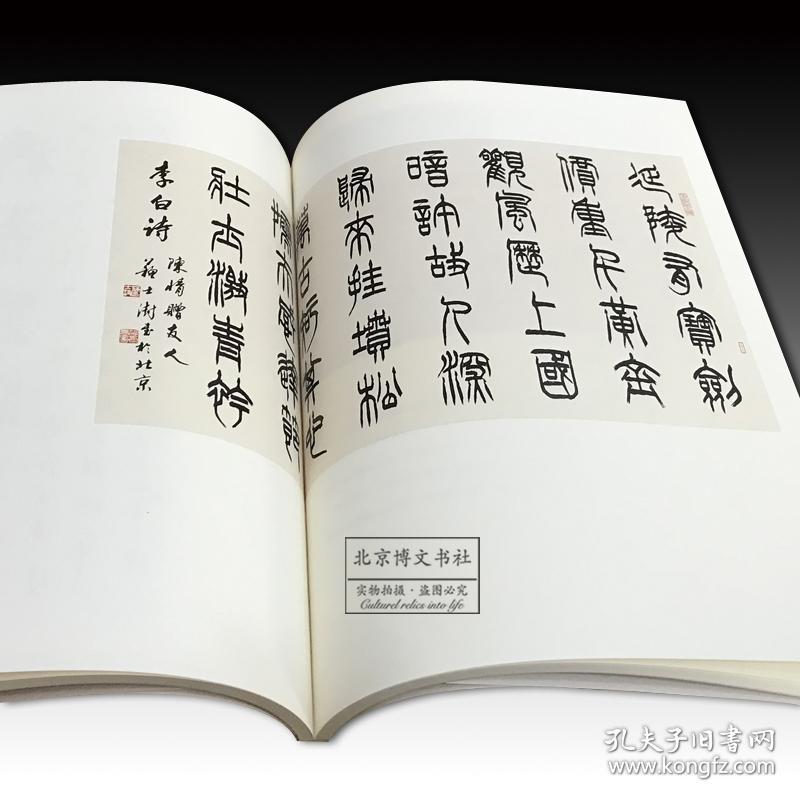 延陵有寶劍
價重千黃金
觀風歷上國
暗許故人深
歸來挂墳松
萬古知其心
懦夫感達節
壯士激青衿
李白詩
陳情贈友人
蘇士澍書於北京
北京博文书社
实物拍摄·盗图必究
Culturel relics into life
孔夫子旧书网
www.kongfz.com